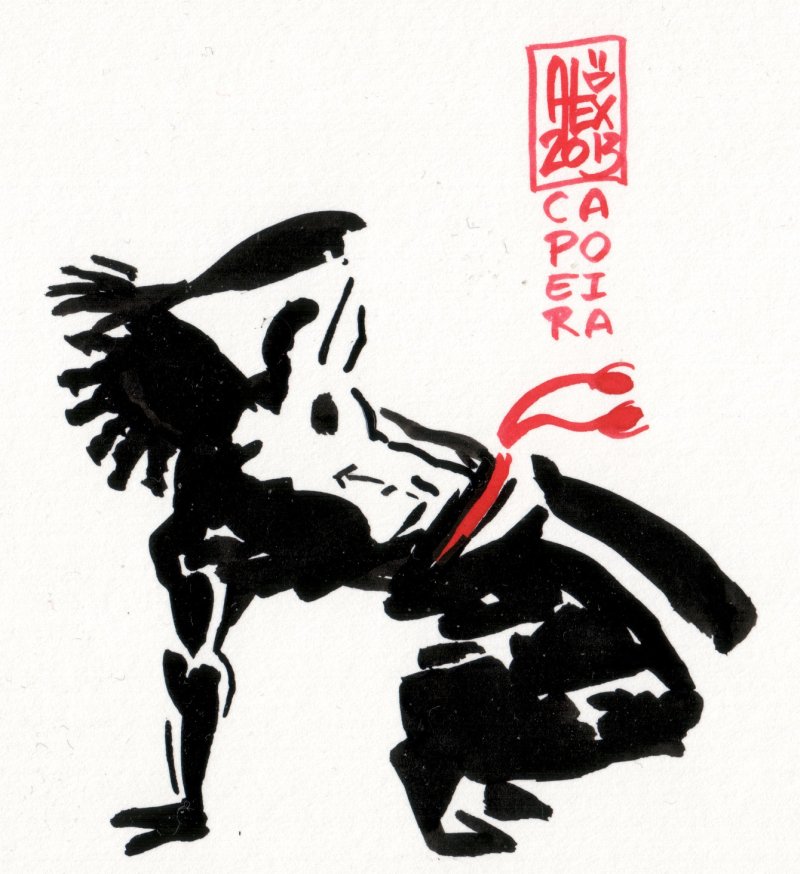 ALEX
2013
CA
PO
EI
RA